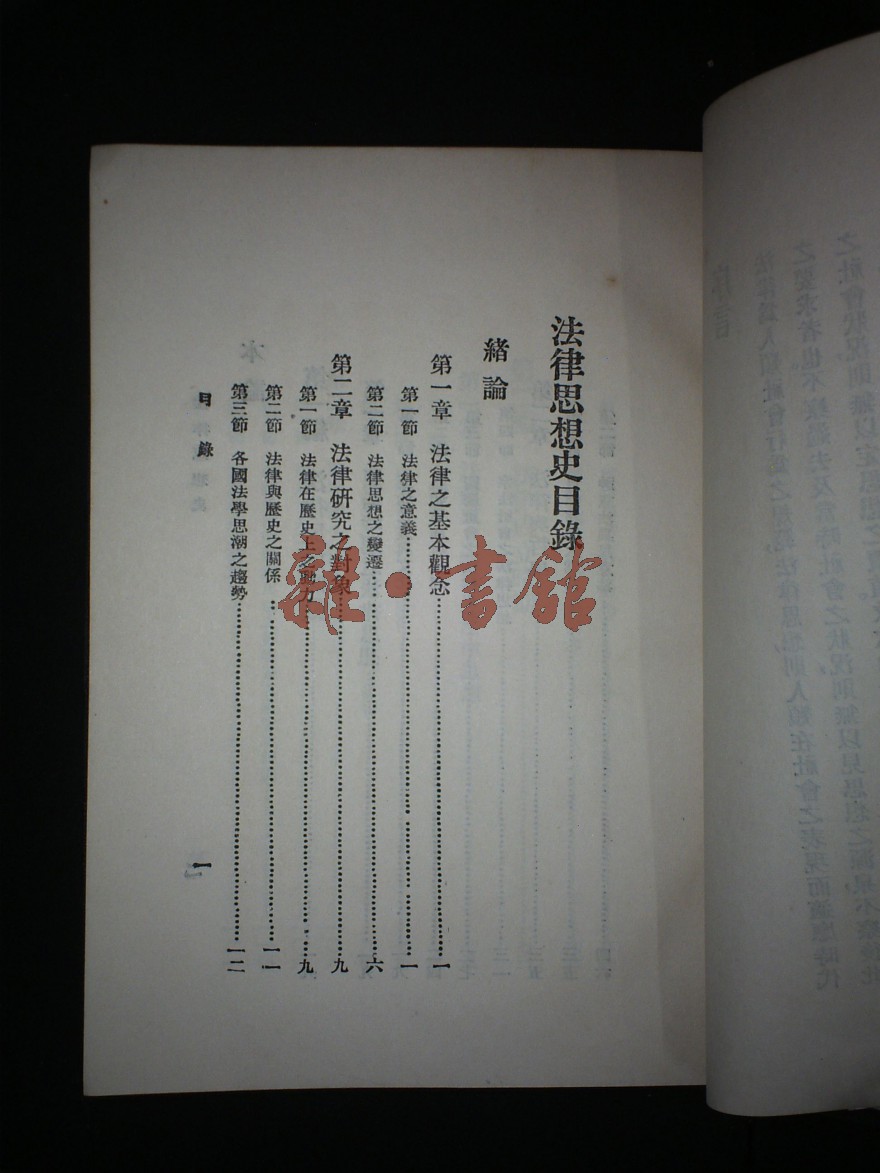 法律思想史目錄
緒論
第一章 法律之基本觀念………一
第一節 法律之意義………一
第二節 法律思想之變遷………六
第二章 法律研究之對象………九
第一節 法律在歷史上之動力………九
第二節 法律與歷史之關係………一一
第三節 各國法學思潮之趨勢………一二
目錄
一
雜·書館